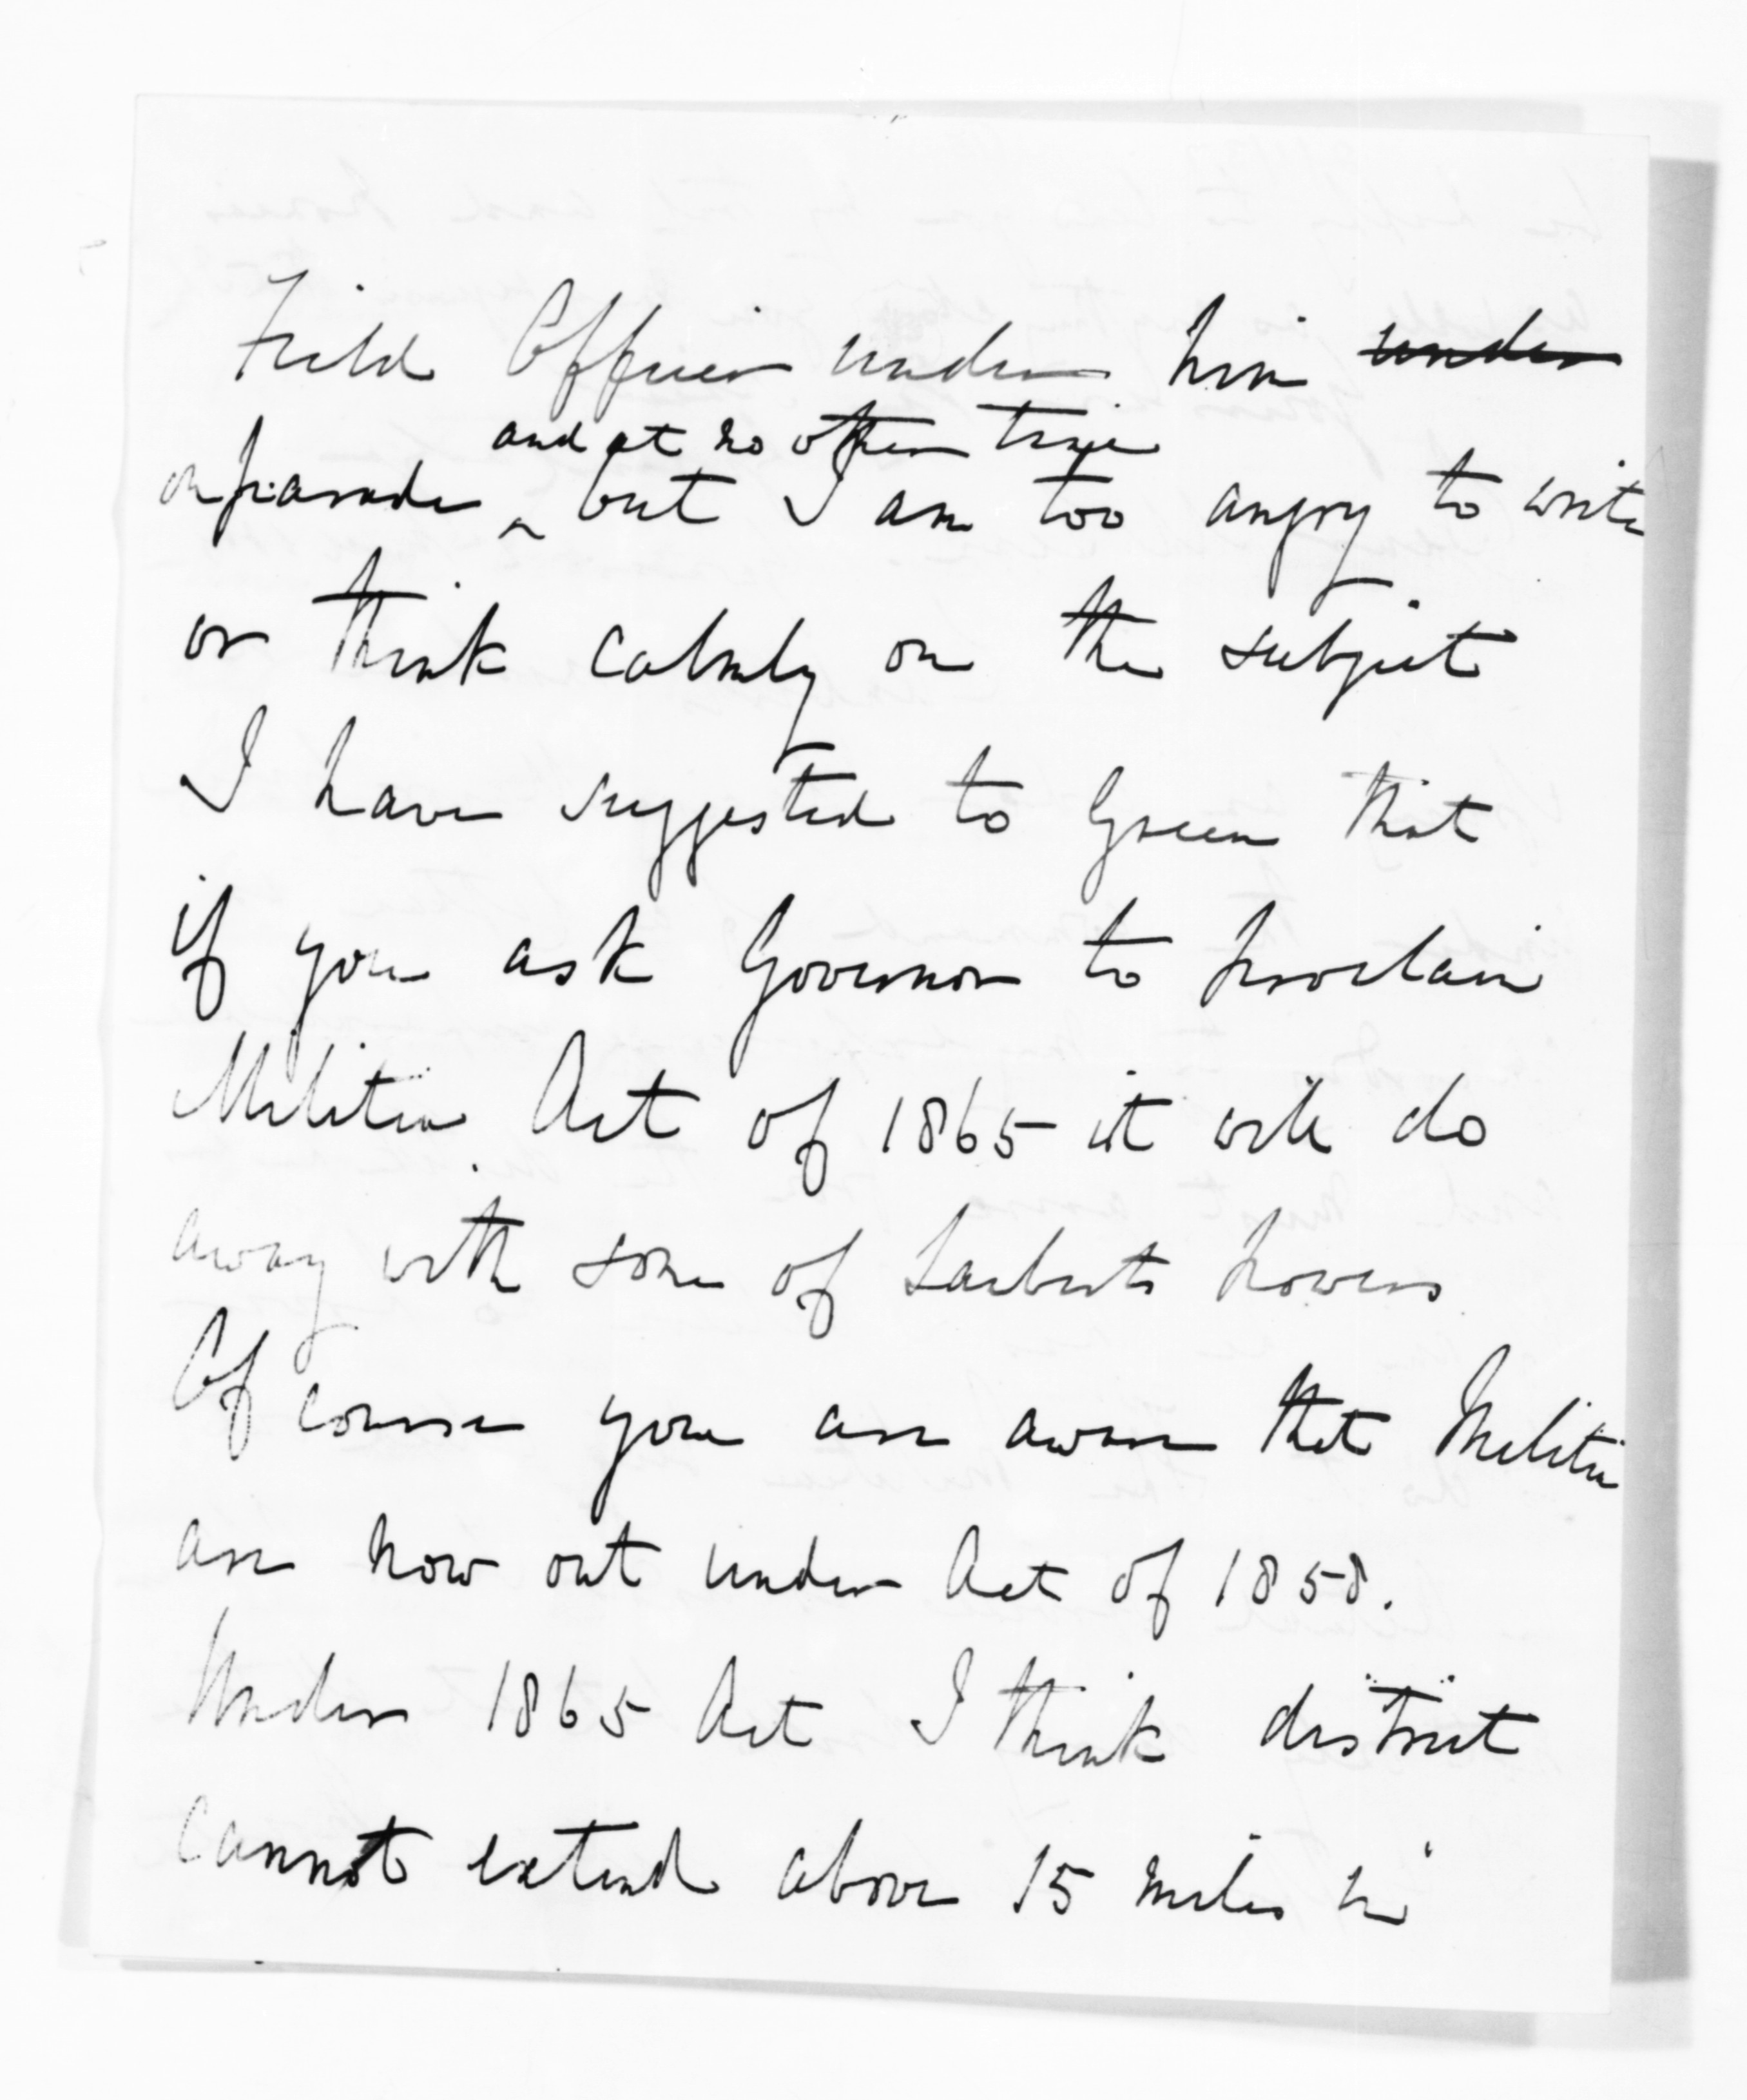 Field Officer under him under
and at no other time
on parade ^ but I am too angry to write
or think calmly on the subject
I have suggested to Green that
if you ask Governor to proclaim
Militia Act of 1865 it will do
away with some of powers
Of course you are aware that Militia
are now out under Act of 1858.
Under 1865 Act I think district
cannot extend above 15 miles in